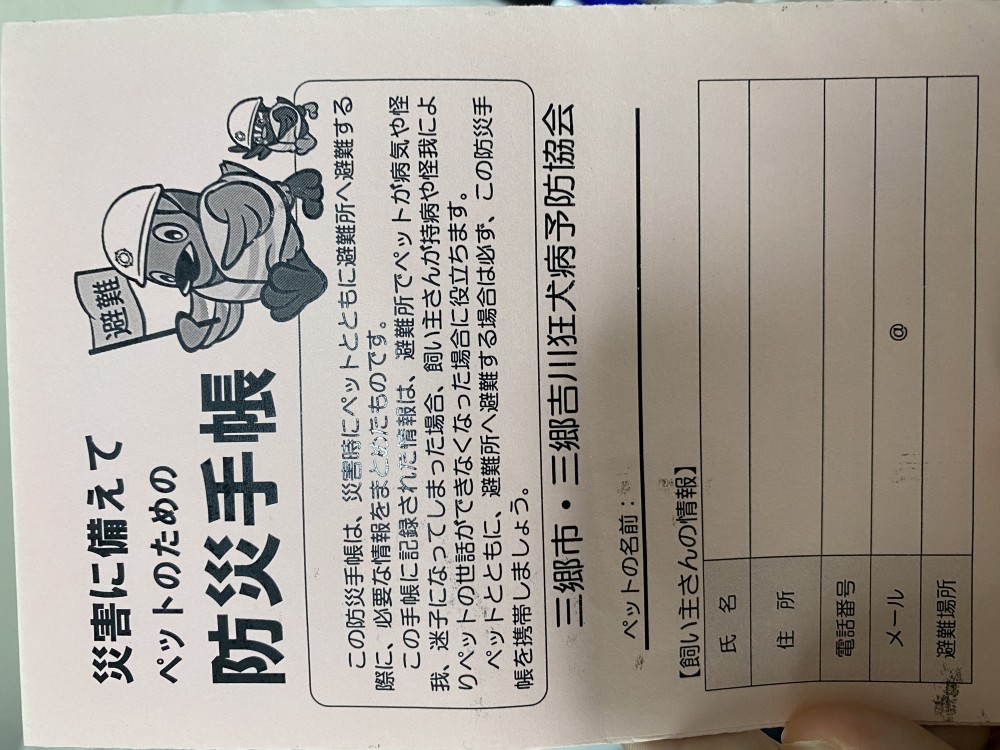 災害に備えて
ペットのための
防災手帳
避難
この防災手帳は、災害時にペットとともに避難所へ避難する
際に、必要な情報をまとめたものです。
この手帳に記録された情報は、避難所でペットが病気や怪
我、迷子になってしまった場合、飼い主さんが持病や怪我によ
りペットの世話ができなくなった場合に役立ちます。
ペットとともに、避難所へ避難する場合は必ず、この防災手
帳を携帯しましょう。
三郷市・三郷吉川狂犬病予防協会
ペットの名前:
【飼い主さんの情報】
氏 名
住 所
電話番号
メール @
避難場所